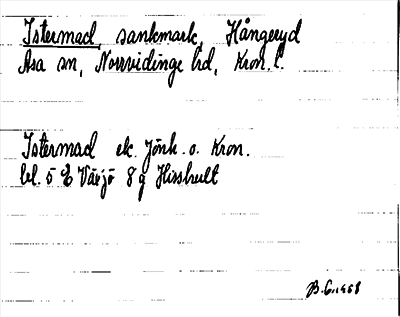 Istermad, sankmark, Hångeryd
Asa sn, Norrvidinge hd, Kron. l.
Istermad ek. Jönk. o. Kron.
bl. 5 E Växjö 8 g Hisshult